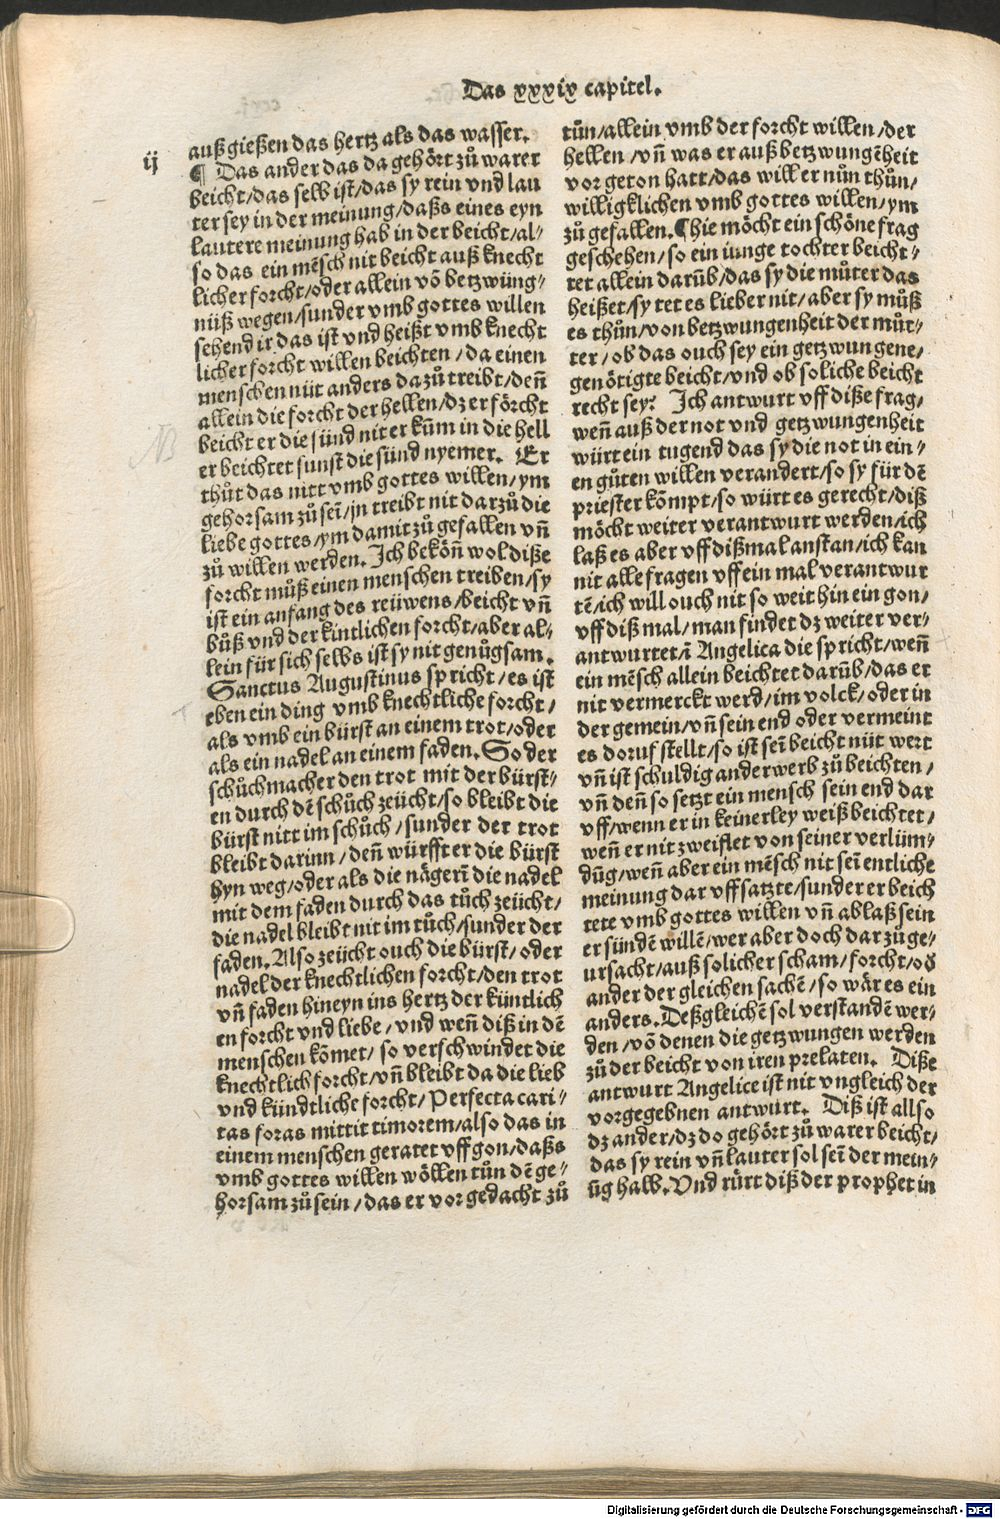 Das xxxix capitel.
außgießen das hertz als das wasser.
ij
¶ Das ander das da gehört zů warer
beicht/das selb ist/das sy rein vnd lau
ter sey in der meinung/daßs eines eyn
lautere meinung hab in der beicht/al-
so das ein mẽsch nit beicht auß knecht
licher forcht/oder allein võ betzwüng-
nüß wegen/sunder vmb gottes willen
sehend ir das ist vnd heißt vmb knecht
licher forcht willen beichten/da einen
menschen nüt anders dazů treibt/deñ
allein die forcht der hellen/dz er förcht
beicht er die sünd nit er kũm in die hell
er beichtet sunst die sünd nyemer. Er
thůt das nitt vmb gottes willen/ym
gehorsam zů sẽi/jn treibt nit darzů die
liebe gottes/ym damit zů gefallen vñ
zů willen werden. Ich bekõn̄ wol diße
forcht můß einen menschen treiben/sy
ist ein anfang des reüwens/beicht vñ
bůß vnd der kintlichen forcht/aber al-
lein für sich selbs ist sy nit genůgsam.
Sanctus Augustinus spricht/es ist
eben ein ding vmb knechtliche forcht/
als vmb ein bürst an einem trot/oder
als ein nadel an einem faden. So der
schůchmacher den trot mit der bürst-
en durch dẽ schůch zeücht/so bleibt die
bürst nitt im schůch/sunder der trot
bleibt darinn/deñ würfft er die bürst
hyn weg/oder als die nägerĩ die nadel
mit dem faden durch das tůch zeücht/
die nadel bleibt nit im tůch/sunder der
faden. Also zeücht ouch die bürst/oder
nadel der knechtlichen forcht/den trot
vñ faden hineyn ins hertz der küntlich
en forcht vnd liebe/vnd weñ diß in dẽ
menschen kõmet/so verschwindet die
knechtlich forcht/vñ bleibt da die lieb
vnd kündtliche forcht/Perfecta cari-
tas foras mittit timorem/also das in
einem menschen geratet vffgon/daßs
vmb gottes willen wöllen tůn dẽ ge-
horsam zů sein/das er vor gedacht zů
tůn/allein vmb der forcht willen/der
hellen/vñ was er auß betzwungẽheit
vor geton hatt/das will er nůn thůn/
willigklichen vmb gottes willen/ym
zů gefallen. ¶ hie möcht ein schöne frag
geschehen/so ein iunge tochter beicht-
tet allein darũb/das sy die můter das
heißet/sy tet es lieber nit/aber sy můß
es thůn/von betzwungenheit der můt-
ter/ob das ouch sey ein getzwungene/
genötigte beicht/vnd ob soliche beicht
recht sey? Ich antwurt vff diße frag/
weñ auß der not vnd getzwungenheit
würt ein tugend das sy die not in ein-
en gůten willen verandert/so sy für dẽ
priester kõmpt/so würt es gerecht/diß
möcht weiter verantwurt werden/ich
laß es aber vff dißmal anstan/ich kan
nit alle fragen vff ein mal verantwur
tẽ/ich will ouch nit so weit hin ein gon/
vff diß mal/man findet dz weiter ver-
antwurtet/ĩ Angelica die spricht/weñ
ein mẽsch allein beichtet darũb/das er
nit vermerckt werd/im volck/oder in
der gemein/vñ sein end oder vermeint
es doruf stellt/so ist sẽi beicht nüt wert
vñ ist schuldig anderwerb zů beichten/
vñ deñ so setzt ein mensch sein end dar
vff/wenn er in keinerley weiß beichtet/
weñ er nit zweiflet von seiner verlüm-
dũg/weñ aber ein mẽsch nit sẽi entliche
meinung dar vff satzte/sunder er beich
tete vmb gottes willen vñ ablaß sein
er sündẽ willẽ/wer aber doch dar zů ge-
ursacht/auß solicher scham/forcht/od̃
ander der gleichen sachẽ/so wär es ein
anders. Deßgleichẽ sol verstandẽ wer-
den/võ denen die getzwungen werden
zů der beicht von iren prelaten. Diße
antwurt Angelice ist nit vngleich der
vorgegebnen antwurt. Diß ist allso
dz ander/dz do gehört zů warer beicht/
das sy rein vñ lauter sol sẽi der mein-
ũg halb. Vnd rürt diß der prophet in
Digitalisierung gefördert durch die Deutsche Forschungsgemeinschaft - DFG